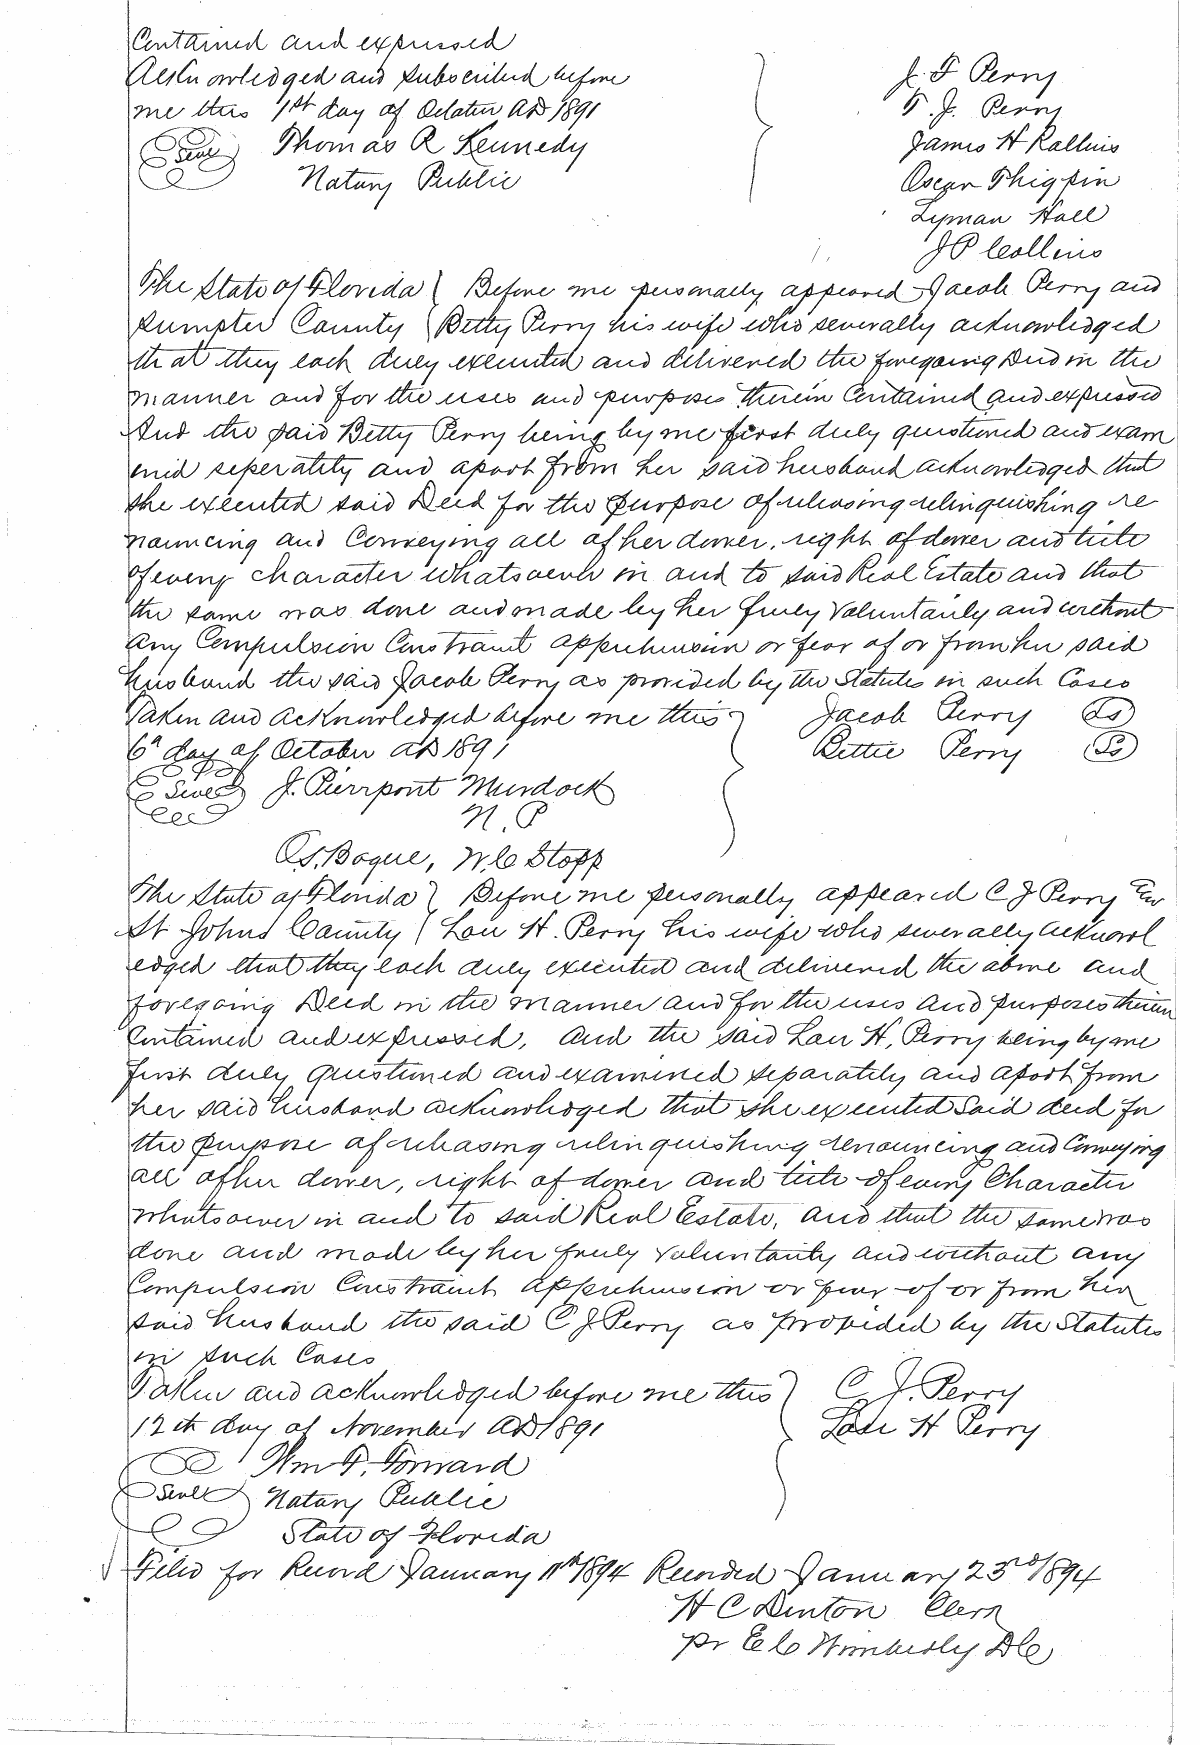 Contained and expressed
Acknowledged and subscribed before
me this 1st day of October AD 1891
Seal Thomas R Kennedy
Notary Public
J. F Perry
T. J. Perry
James H Rollins
Oscar Thigpin
Lyman Hall
J P Collins
The State of Florida Before me personally appeared Jacob Perry and
Sumpter County Betty Perry his wife who severally acknowledged
that they each duly executed and delivered the foregoing Deed in the
manner and for the uses and purposes therein Contained and expressed
And the said Betty Perry being by me first duly questioned and exam
ined seperately and apart from her said husband acknowledged that
she executed said Deed for the purpose of releasing relinquishing re
nouncing and Conveying all of her dower, right of dower and title
of every character whatsoever in and to said Real Estate and that
the same was done and made by her freely voluntarily and without
any Compulsion Constraint apprehension or fear of or from her said
husband the said Jacob Perry as provided by the Statutes in such Cases
Taken and acknowledged before me this Jacob Perry (Ls)
6th day of October AD 1891 Bettie Perry (Ls)
Seal J. Pierrpont Murdock
N. P
C.S. Boque, W. C Stopp
The State of Florida Before me personally appeared C J Perry and
St Johns County Lou H. Perry his wife who severally acknowl
edged that they each duly executed and delivered the above and
foregoing Deed in the manner and for the uses and purposes therein
Contained and expressed, and the said Lou H, Perry being by me
first duly questioned and examined separately and apart from
her said husband acknowledged that she executed said deed for
the purpose of releasing relinquishing renouncing and Conveying
all of her dower, right of dower and title of every Character
whatsoever in and to said Real Estate, and that the same was
done and made by her freely voluntarily and without any
Compulsion Constraint apprehension or fear of or from her
said husband the said C J Perry as provided by the Statutes
in such Cases
Taken and acknowledged before me this C. J. Perry
12th day of November AD 1891 H Perry
Seal Wm F. Forward
Notary Public
State of Florida
Filed for Record January 11th 1894 Recorded January 23rd 1894
H C Denton Clerk
pr E C Wimberly DC